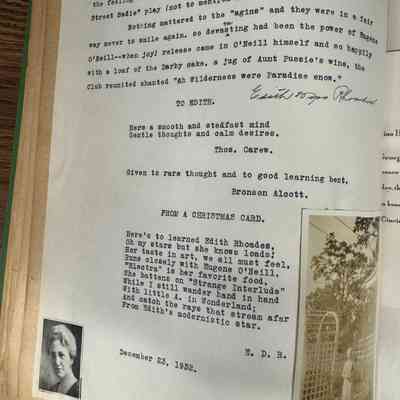 the feeling
Street Sadie" play (not to mention
Nothing mattered to the "agine" and they were in a fair
way never to smile again, so devasting had been the power of Eugene
ta
O'Neill--when joy! release came in O'Neill himself and so happily
with a loaf of the Darby cake, a jug of Aunt Pussie's wine, the
Club reunited chanted "Ah Wilderness were Paradise enow."
Edith Rhoades
TO EDITH.
Here a smooth and stedfast mind
Gentle thoughts and calm desires.
Thos. Carew.
Given to rare thought and to good learning bent.
Bronson Alcott.
FROM A CHRISTMAS CARD.
Here's to learned Edith Rhoades,
Oh my stars but she knows loads;
Her taste in art, we all must feel,
Runs closely with Eugene O'Neill.
"Electra" is her favorite food,
She battens on "Strange Interlude"
While I still wander hand in hand
With little A. in Wonderland;
And catch the rays that stream afar
From Edith's modernistic star.
December 23, 1932.